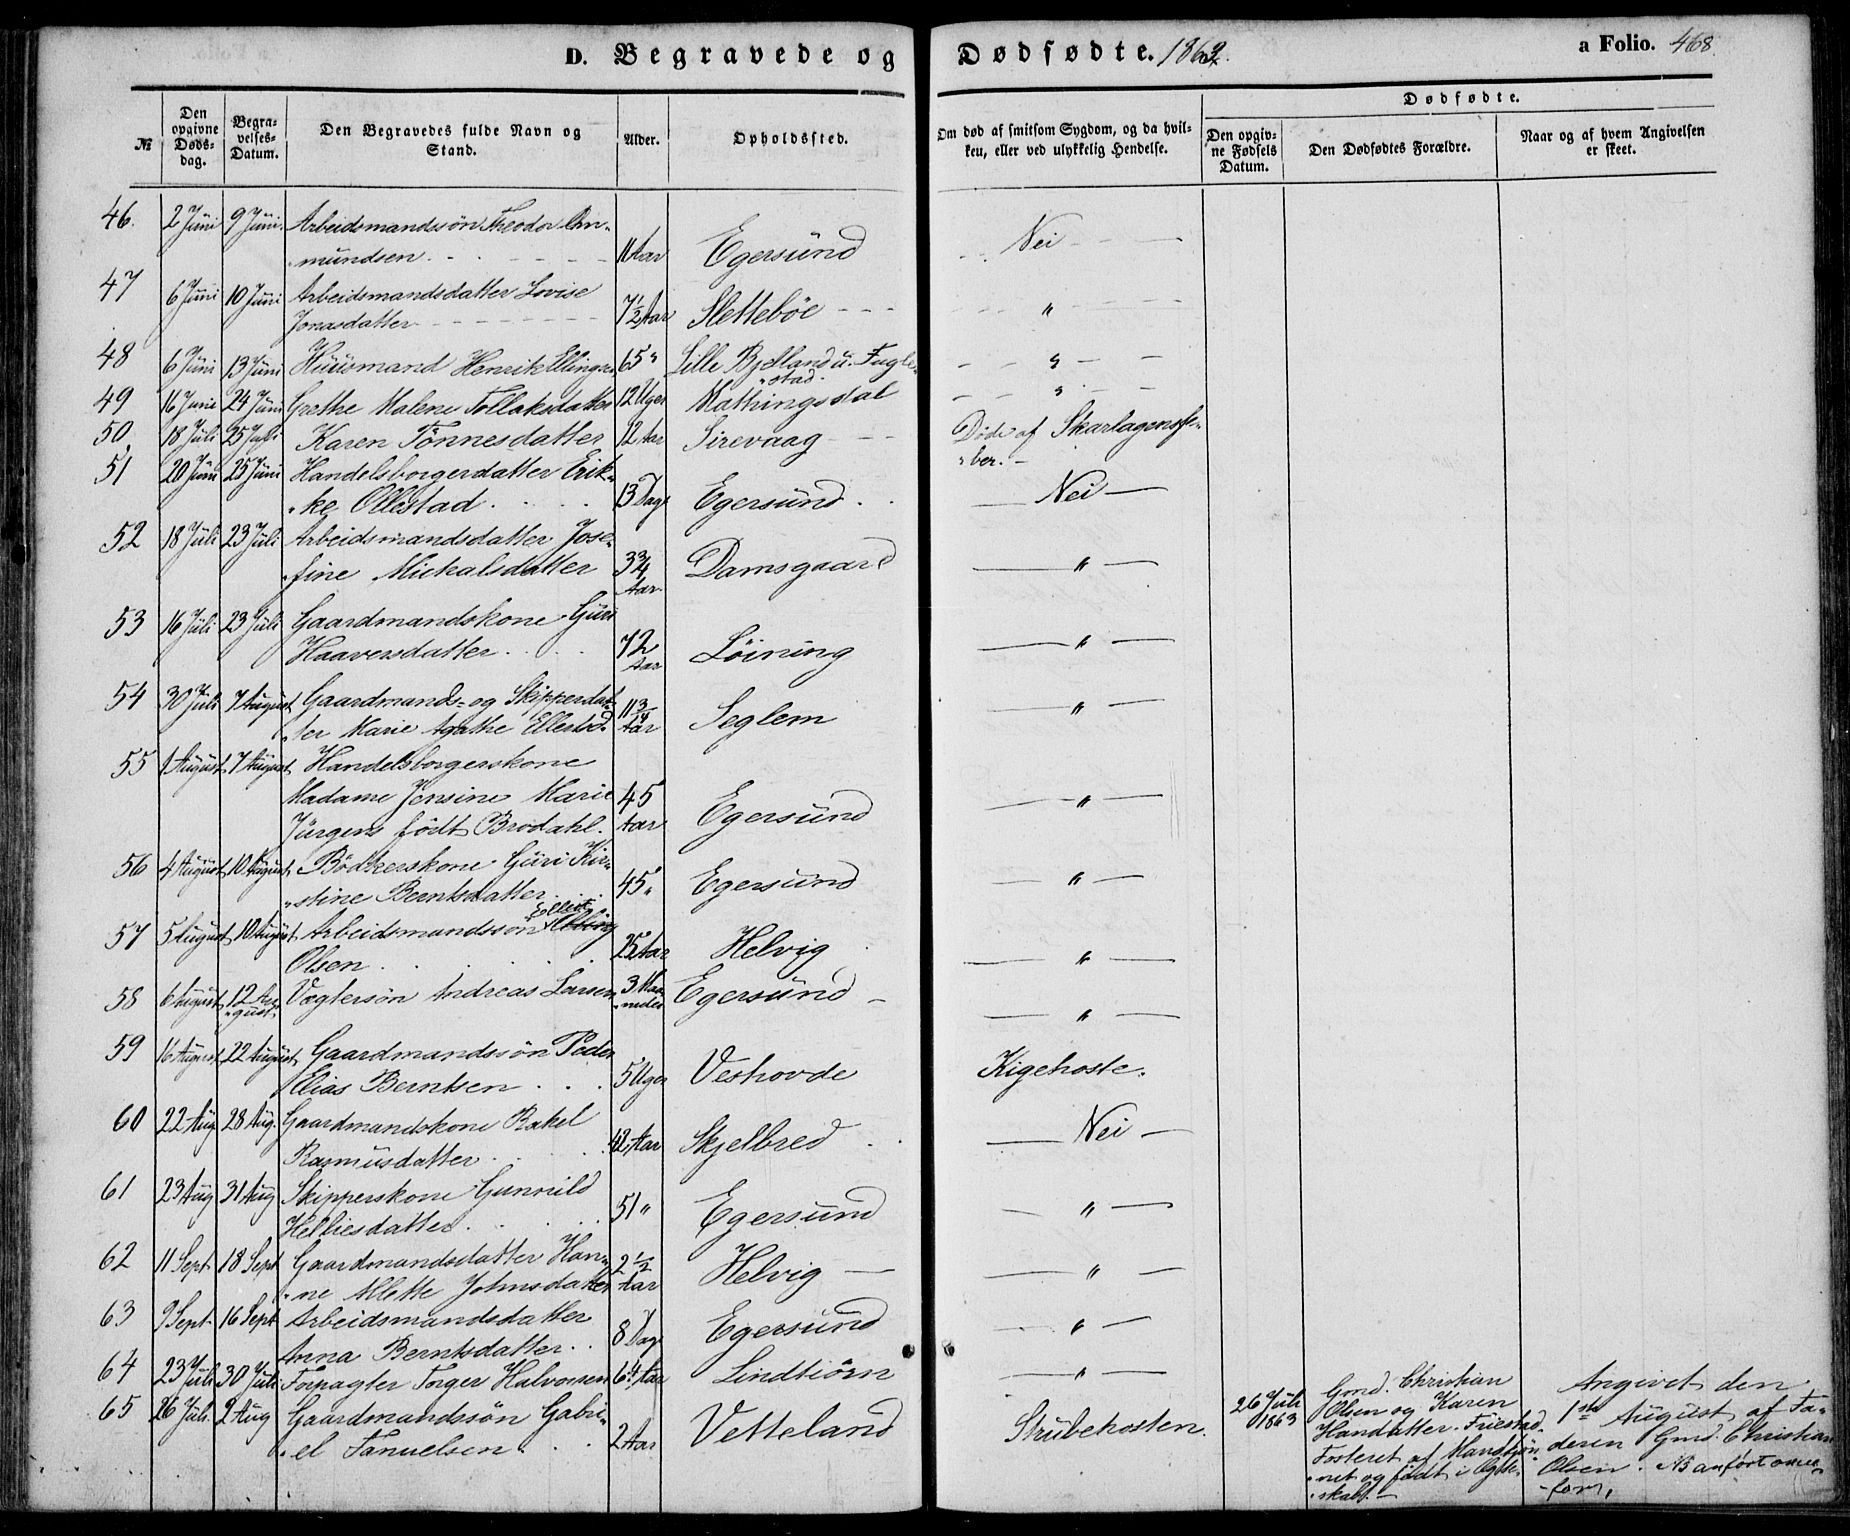 D. Begravede og Dødfødte. 1862. a Folio. 468
№
Den opgivne Døds-dag.
Begra-velses-Datum.
Den Begravedes fulde Navn og Stand.
Alder.
Opholdssted.
Om død af smitsom Sygdom, og da hvil-ken, eller ved ulykkelig Hendelse.
Dødfødte.
Den opgiv-ne Fødsels Datum.
Den Dødfødtes Forældre.
Naar og af hvem Angivelsen er skeet.
46. 2 Juni 9 Juni Arbeidsmandssøn Theodor Am-
mundsen. 11 Aar Egersund Nei
47 6 Juni 10 Juni Arbeidsmandsdatter Lovise
Jonasdatter 7½ Aar Slettebøe "
48 6 Juni 13 Juni Huusmand Henrik Ellingsen 65 " Lille Bjelland u. Fugle-
stad. "
49 16 Juni 24 Juni Grethe Malene Tollaksdatter 12 Uger Mathingsdal "
50 18 Juli 25 Juli Karen Tønnesdatter 12 Aar Sirevaag Døde af Skarlagensfe-
ber.
51 20 Juni 25 Juni Handelsborgerdatter Erik-
ke Ollestad 13 Dage Egersund Nei
52 18 Juli 23 Juli Arbeidsmandsdatter Jose-
fine Mickalsdatter 3¾ Aar Damsgaard "
53 16 Juli 23 Juli Gaardmandskone Guri
Haaversdatter 72 Aar Løining "
54 30 Juli 7 August Gaardmands- og Skipperdat-
ter Marie Agathe Ellestad 11¾ Aar Seglem "
55 1 August 7 August Handelsborgerskone
Madame Jensine Marie 45
Jürgens født Brodahl. Aar Egersund "
56 4 August 10 August Bødkerskone Guri Kir-
stine Berntsdatter 45 " Egersund "
57 5 August 10 August Arbeidsmandssøn
Olsen 25 Aar Helvig "
58 6 August 12 Au-gust Vægtersøn Andreas Larsen 3 Maa-neder Egersund "
59 16 August 22 August Gaardmandssøn Peder
Elias Berntsen 5 Uger Veshovde Kigehoste.
60 22 Aug 28 Aug. Gaardmandskone Rakel
Rasmusdatter 42 Aar Skjelbred Nei
61 23 Aug 31 Aug Skipperskone Gunnild
Helliesdatter 51 " Egersund "
62 11 Sept 18 Sept Gaardmandsdatter Han-
ne Mette Johnsdatter 2½ Aar Helvig "
63 9 Sept 16 Sept Arbeidsmandsdatter
Anna Berntsdatter 8 Dage Egersund "
64 23 Juli 30 Juli Forpagter Torger Halvorsen 64 Aar Lindtiørn "
65 26 Juli 2 Aug Gaardmandssøn Gabri-
el Tanuelsen 2 Aar Vetteland Strubehosten.
26 Juli
1863
Gmd. Christian
Olsen og Karen
Hansdatter Friestad.
Fosteret af Mandkjøn-
net og født i Ægte-
skab.
Angivet den
1ste August af Fa-
deren Gmd. Christian
Olsen. NB anført oven-
for.